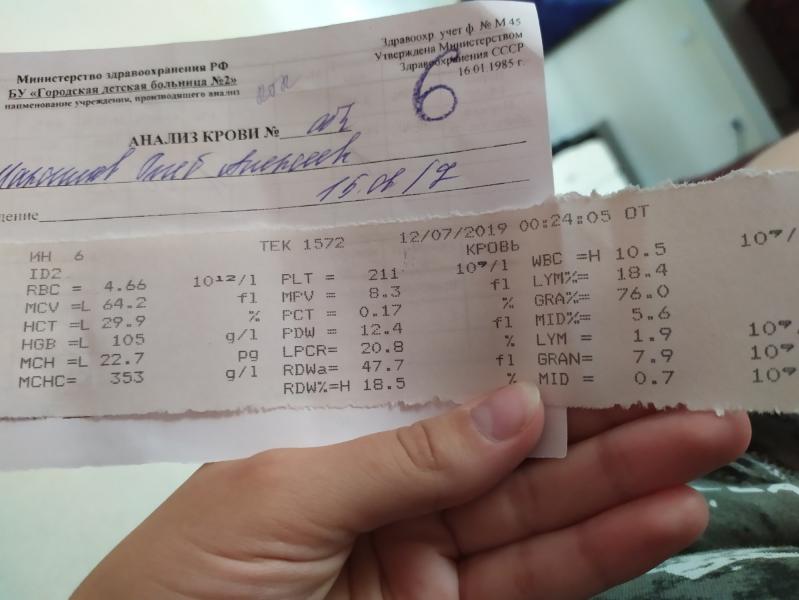 Здравоохр. учет ф. № М 45
Утверждена Министерством
Здравоохранения СССР
16.01.1985 г.
Министерство здравоохранения РФ
БУ «Городская детская больница №2»
наименование учреждения, производящего анализ
6
АНАЛИЗ КРОВИ №
Алексеев
ИН 6 ТЕК 1572 12/07/2019 00:24:05 ОТ
ID2 КРОВЬ
RBC = 4.66 10¹²/l PLT = 211 10⁹/l WBC =H 10.5 10⁹/
MCV =L 64.2 fl MPV = 8.3 fl LYM%= 18.4
HCT =L 29.9 % PCT = 0.17 % GRA%= 76.0
HGB =L 105 g/l PDW = 12.4 fl MID%= 5.6
MCH =L 22.7 pg LPCR= 20.8 % LYM = 1.9 10⁹
MCHC= 353 g/l RDWa= 47.7 fl GRAN= 7.9 10⁹
RDW%=H 18.5 % MID = 0.7 10⁹